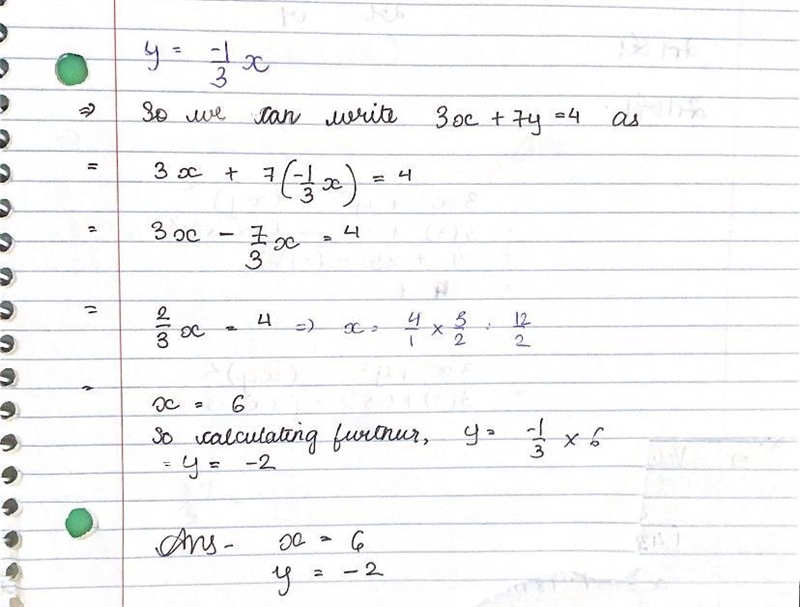 y = -1/3 x
⇒ So we can write 3x + 7y = 4 as
= 3x + 7(-1/3 x) = 4
= 3x - 7/3 x = 4
= 2/3 x = 4 ⇒ x = 4/1 × 3/2 : 12/2
= x = 6
So calculating furthur, y = -1/3 × 6
= y = -2
Ans - x = 6
y = -2